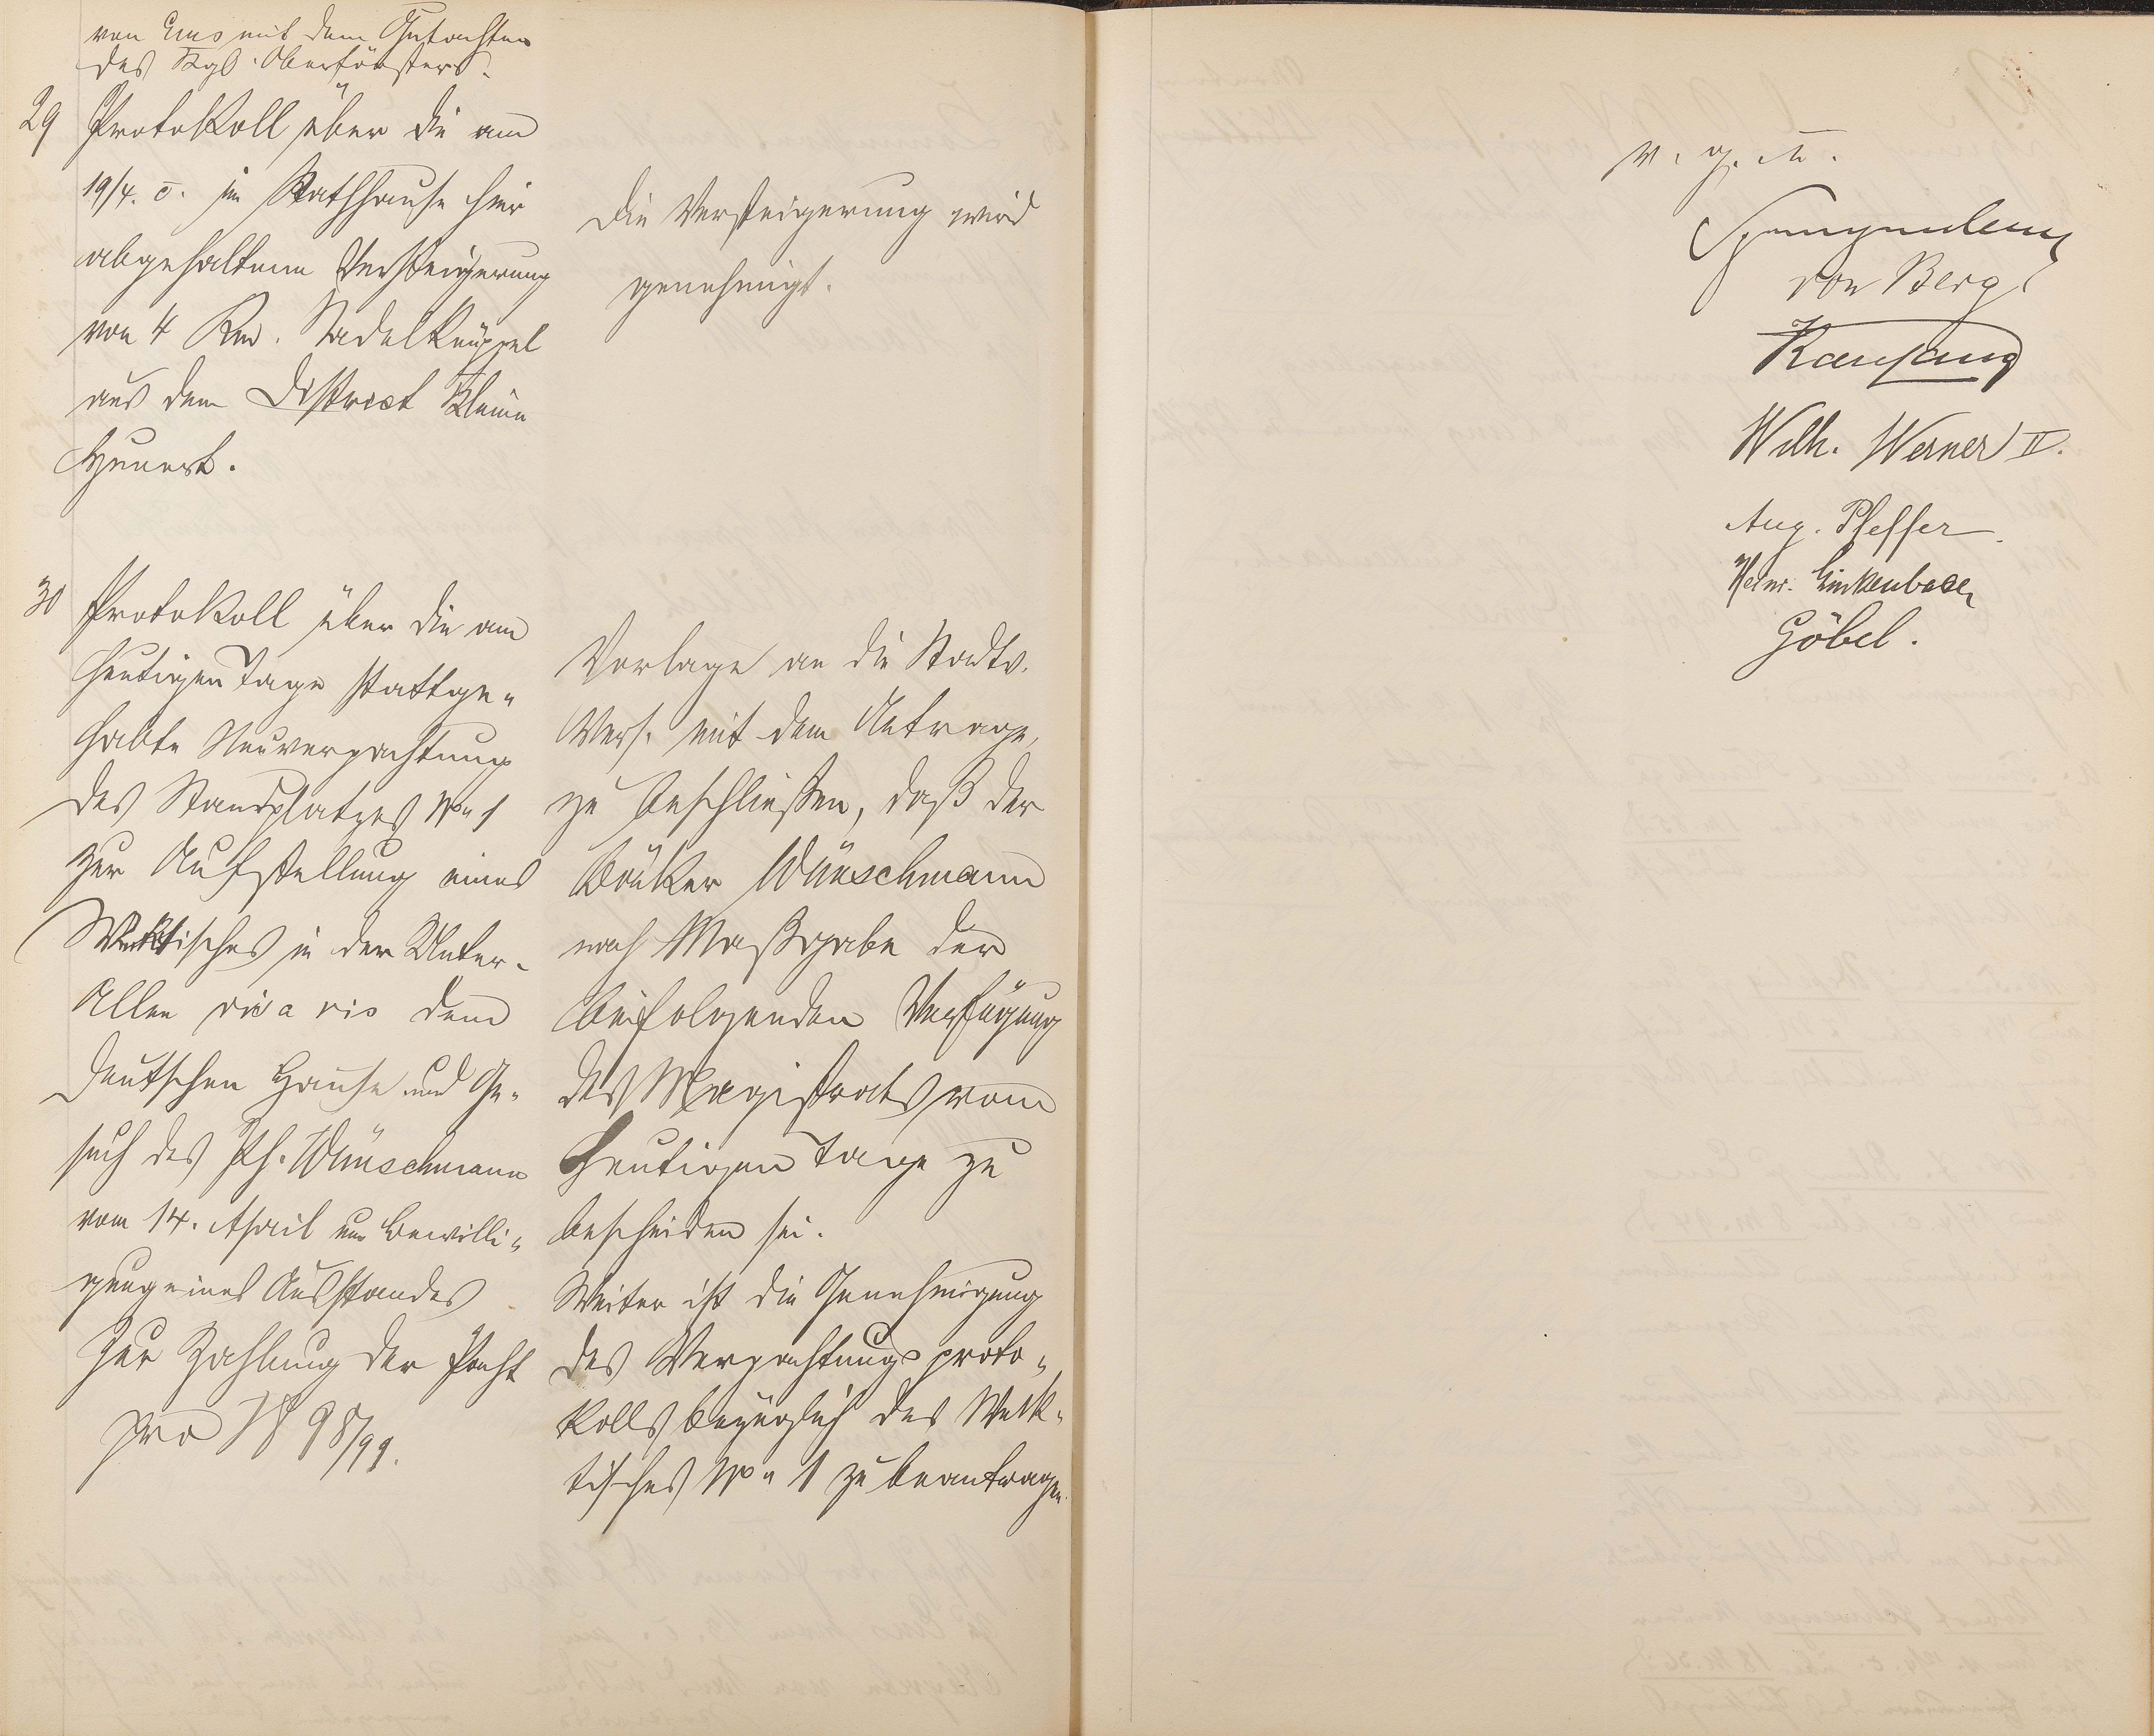 von Ems mit dem Gutachten
des Kgl. Oberförsters.
29 Protokoll über die am
19/4. c. im Rathhause hier
abgehaltene Versteigerung
von 4 Rm. Nadelknüppel
aus dem District Kleine
Hunert.
Die Versteigerung wird
genehmigt.
30 Protokoll über die am
heutigen Tage stattge-
habte Neuverpachtung
des Standplatzes No 1
zur Aufstellung eines
Wecktisches in der Unter-
Allee vis a vis dem
deutschen Hause und Ge-
such des Ph. Wünschmann
vom 14. April um Bewilli-
gung eines Ausstandes
zur Zahlung der Pacht
pro 1898/99.
Vorlage an die Stadtv.
Vers. mit dem Antrage,
zu beschließen, daß der
Bäcker Wünschmann
nach Maßgabe der
beifolgenden Verfügung
des Magistrats vom
heutigen Tage zu
bescheiden sei.
Weiter ist die Genehmigung
des Verpachtungsproto-
kolls bezüglich des Weck-
tisches No 1 zu beantragen.
v. g. u.
Spangenberg
von Berg
Wilh. Werner II.
Aug. Pfeffer.
Heinr. Linkenbach
Göbel.